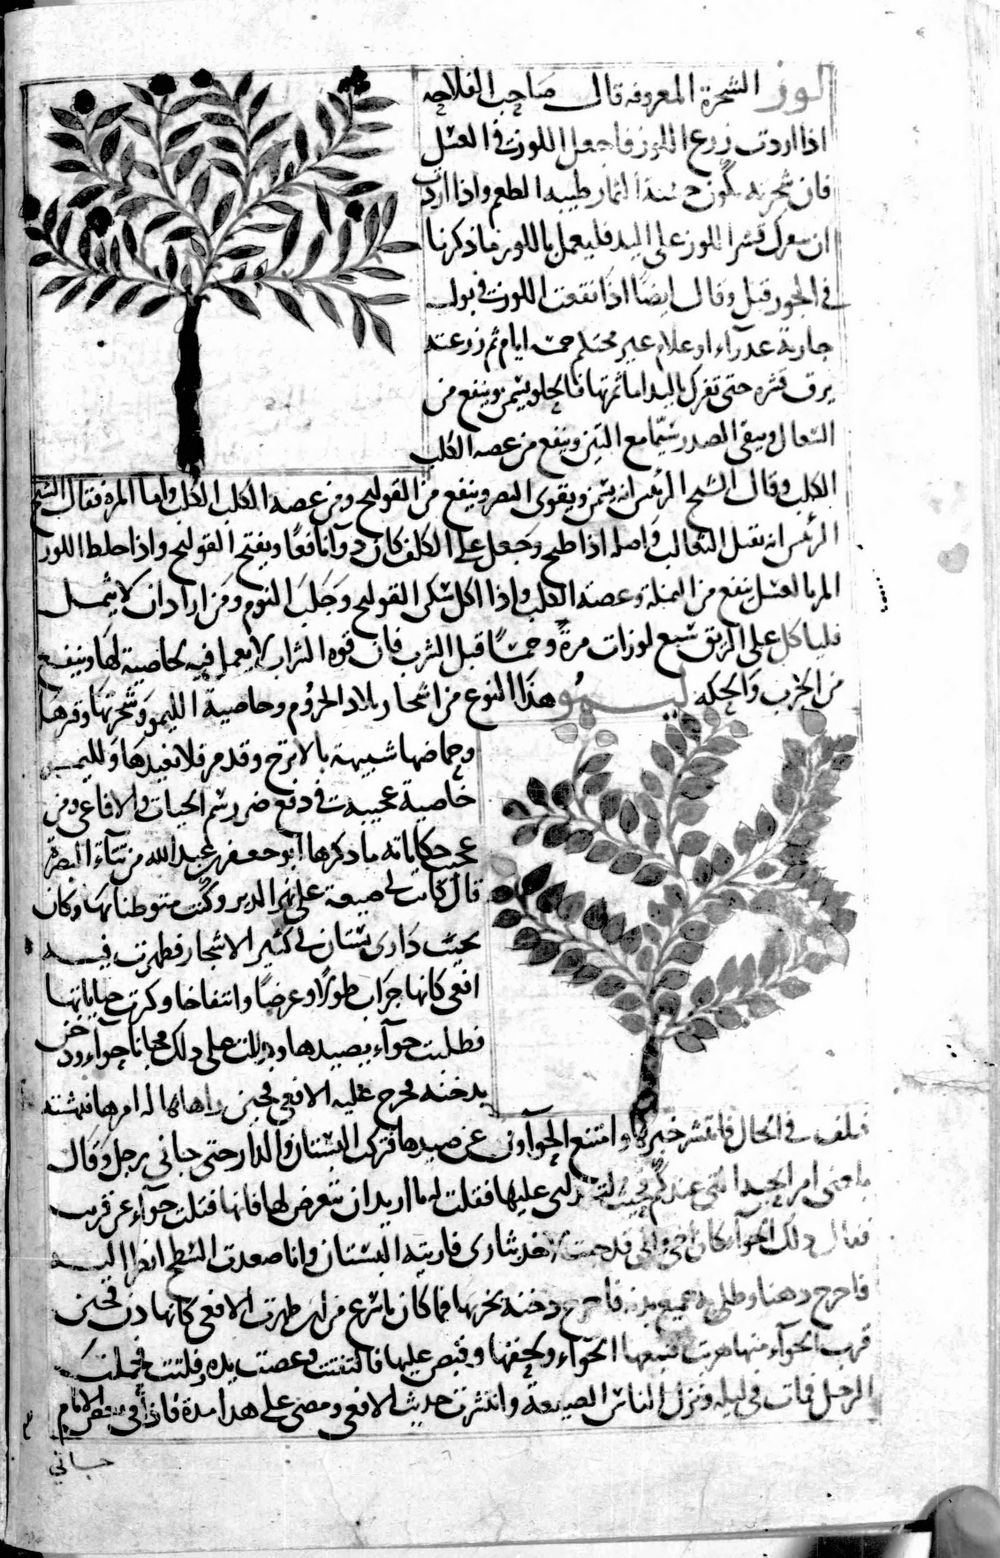 لوز الشجرة المعروفه قال صاحب الفلاحه
اذا اردت زرع اللوز فاجعل اللوز في العسل
فان شجرته تكون حسنة الثمار طيبه الطعم واذا اردت
ان يتفرك قشر اللوز على اليد فليعمل باللوز ما ذكرنا
في الجوز قبل وقال ايضا اذا نقعت اللوز في بول
جارية عذراء او غلام غير محتلم خمسه ايام ثم زرعته
يرق قشره حتى تفرك باليد اما ثمرتها فالحلو يسمن وينفع من
السعال وينقى الصدر سيما مع التين وينفع من عضه الكلب
الكلب وقال الشيخ الرئيس انه يسمن ويقوى البصر وينفع من القولنج ومن عضه الكلب الكلب واما المره فقال الشيخ
الرئيس انه يقتل الثعالب واصله اذا طبخ وجعل على الكلف كان دوآ نافعا ويفتح القولنج واذا خلط اللوز
المر بالعسل ينفع من النملة وعضة الكلب واذا اكل سكن القولنج وجلب النوم ومن اراد ان لا يثمل
فلياكل على الريق سبع لوزات مرة وخمسا قبل الشرب فان قوه الشراب لا يعمل فيه بخاصية لها وينفع
من الجرب والحكه ليمو هذا النوع من اشجار بلاد الحروم وخاصية الليمو وشجرتها وقرها
وحماضها شبيهة بالاترج وقد مر فلا نعيدها ولليمو
خاصية عجيبة في دفع ضرر سم الحيات والافاعى ومن
عجيب حكاياته ما ذكرها ابو جعفر بن عبد الله من تناء البصرة
قال كانت لي ضيعة على نهر الدير وكنت متوطنا بها وكان
بجنب دارى بستان لي كثير الاشجار فظهرت فيه
افعى كانها جراب طولا وعرضا وانتفاخا وكثرت جناياتها
فطلبت حوآء يصيدها وبذلت على ذلك فجانا حوآء ودخن
بدخنه فخرج عليه الافعى فحين راها هاله امرها فنهشته
فتلف في الحال فانتشر خبرها وامتنع الحوآون عن صيدها فتركت البستان والدار حتى جاني رجل وقال
بلغنى امر الحية التي عندكم فجئت لتدلني عليها فقلت له ما اريد ان تتعرض لها فانها قتلت حوآء عن قريب
فقال ذلك الحوآء كان اخي واني قد جئت لاخذ بثارى فاريته البستان وانا صعدت السطح انظر اليه
فاخرج دهنا وطلى به جميع بدنه فاخرج دخنه بخر بها فما كان باسرع من ان ظهرت الافعى كانها دن فحين
قرب الحوآء منها هربت فتبعها الحوآء ولحقها وقبض عليها فالتفتت وعضت يده وفلتت فحملت
الرجل فمات في ليله وترك الناس الضيعة وانتشرت حديث الافعى ومضى على هذا مدة فاذا في بعض الايام
جاني